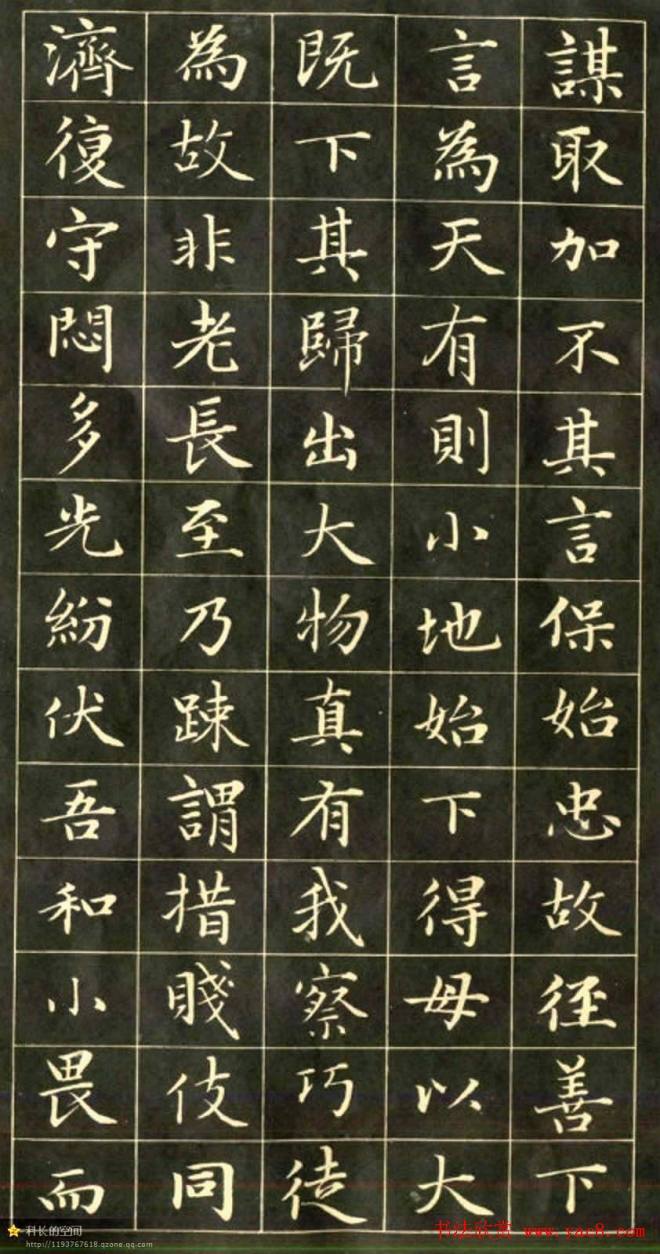 謀取加不其言保始忠故徑善下
言為天有則小地始下得毋以大
既下其歸出大物真有我察巧徒
為故非老長至乃踈謂措賤伎同
濟復守悶多光紛伏吾和小畏而
科长的空间
http://1193767618.qzone.qq.com
书法欣赏 www.yac8.com